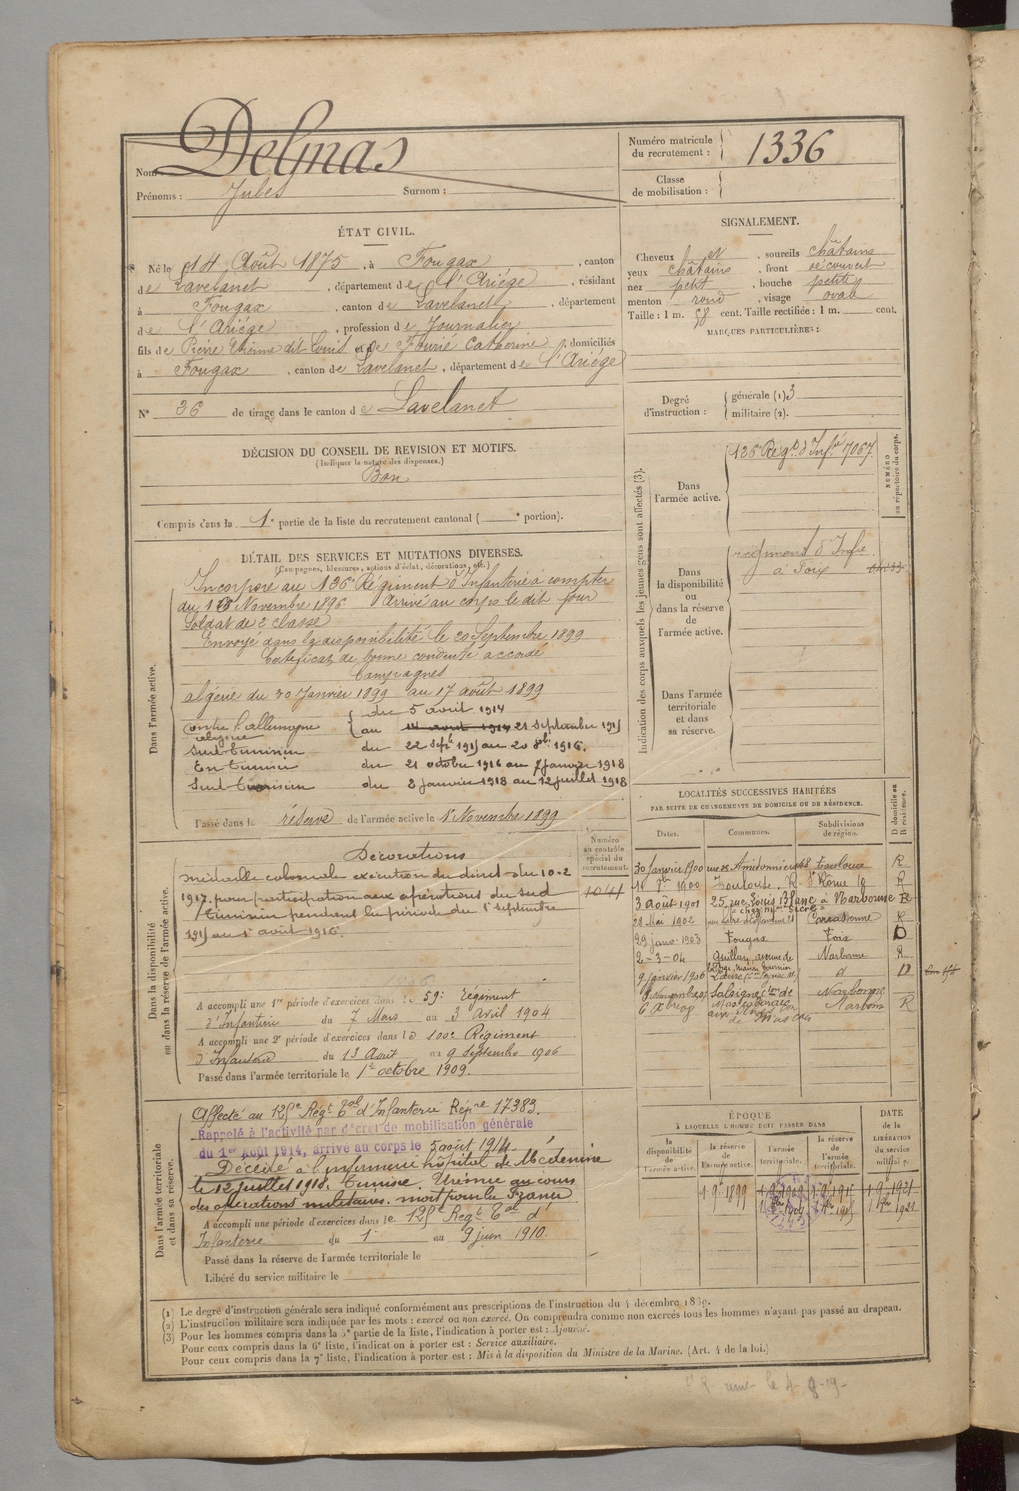 Nom Delmas
Prénoms : Jules Surnom :
Numéro matricule du recrutement : 1336
Classe de mobilisation :
ÉTAT CIVIL.
Né le 14 Août 1875, à Fougax, canton
de Lavelanet, département de l'Ariège, résidant
à Fougax, canton de Lavelanet, département
de l'Ariège, profession de Journalier
fils de Pierre Etienne dit Louis et de Fourié Catherine, domiciliés
à Fougax, canton de Lavelanet, département de l'Ariège
N° 36 de tirage dans le canton de Lavelanet
SIGNALEMENT.
Cheveux et, sourcils châtains
yeux châtains, front découvert
nez petit, bouche petite
menton rond, visage oval
Taille : 1 m. 58 cent. Taille rectifiée : 1 m. cent.
MARQUES PARTICULIÈRES :
Degré d'instruction : générale (1) 3
militaire (2).
DÉCISION DU CONSEIL DE REVISION ET MOTIFS.
(Indiquer la nature des dispenses.)
Bon
Compris dans la 1e partie de la liste du recrutement cantonal ( e portion).
DÉTAIL DES SERVICES ET MUTATIONS DIVERSES.
(Campagnes, blessures, actions d'éclat, décorations, etc.)
Dans l'armée active.
Incorporé au 126e Régiment d'Infanterie à compter
du 16 Novembre 1896 Arrivé au corps le dit jour
Soldat de 2e classe
Envoyé dans la disponibilité le 20 Septembre 1899
Certificat de bonne conduite accordé
Campagnes
algérie du 30 Janvier 1899 au 17 août 1899
contre l'allemagne du 5 avril 1914
algérie au 14 août 1914 21 septembre 1915
Sud tunisien du 22 septbre 1915 au 20 8bre 1916.
En tunisie du 21 octobre 1916 au 7 janvier 1918
Sud tunisien du 8 janvier 1918 au 12 juillet 1918
Passé dans la réserve de l'armée active le 1er Novembre 1899
Numéro au contrôle spécial du recrutement.
1044
Dans la disponibilité ou dans la réserve de l'armée active.
Décorations
médaille coloniale exécution du direct du 10-2
1917. pour participation aux opérations du sud
tunisien pendant la période du 1er septembre
1915 au 1er août 1916.
A accompli une 1re période d'exercices dans le 59e Régiment
d'Infanterie du 7 Mars au 3 Avril 1904
A accompli une 2e période d'exercices dans le 100e Régiment
d'Infanterie du 13 Août au 9 Septembre 1906
Passé dans l'armée territoriale le 1er octobre 1909.
Dans l'armée territoriale et dans sa réserve.
Affecté au 125e Régt Tal d'Infanterie Répre 17383.
Rappelé à l'activité par décret de mobilisation générale
du 1er Août 1914, arrivé au corps le 5 août 1914
Décédé à l'infirmerie hôpital de Médenine
le 12 juillet 1918. Tunisie. Urémie au cours
des opérations militaires. mort pour la France
A accompli une période d'exercices dans le 125e Regt Tal d'
Infanterie du 1er au 9 juin 1910.
Passé dans la réserve de l'armée territoriale le
Libéré du service militaire le
Indication des corps auxquels les jeunes gens sont affectés (3).
Dans l'armée active. 126e Régt d'Infrie 7067
NUMÉRO au répertoire du corps.
Dans la disponibilité ou dans la réserve de l'armée active.
régiment d'Infie
à Foix
Dans l'armée territoriale et dans sa réserve.
LOCALITÉS SUCCESSIVES HABITÉES
PAR SUITE DE CHANGEMENTS DE DOMICILE OU DE RÉSIDENCE.
Dates. Communes. Subdivisions de région. D domicile ou R résidence.
30 Janvier 1900 rue des Amidonniers 68 Toulouse R
1900 Toulouse. R. St Rome 18 R
3 août 1901 25 rue Louis Blanc à Narbonne R
28 Mai 1902 Carcassonne R
29 janv. 1903 Fougax Foix D
2-3-04 Quillan, avenue de Narbonne R
9 janvier 1906 d D
Salsigne Narbonne
Narbonne R
ÉPOQUE
À LAQUELLE L'HOMME DOIT PASSER DANS
la disponibilité de l'armée active. la réserve de l'armée active. l'armée territoriale. la réserve de l'armée territoriale.
DATE de la LIBÉRATION du service militaire.
1 9e 1899 1 9e 1909 1 9e 1915 1 9e 1921
(1) Le degré d'instruction générale sera indiqué conformément aux prescriptions de l'instruction du 4 décembre 1889.
(2) L'instruction militaire sera indiquée par les mots : exercé ou non exercé. On comprendra comme non exercés tous les hommes n'ayant pas passé au drapeau.
(3) Pour les hommes compris dans la 5e partie de la liste, l'indication à porter est : Ajourné.
Pour ceux compris dans la 6e liste, l'indication à porter est : Service auxiliaire.
Pour ceux compris dans la 7e liste, l'indication à porter est : Mis à la disposition du Ministre de la Marine. (Art. 4 de la loi.)